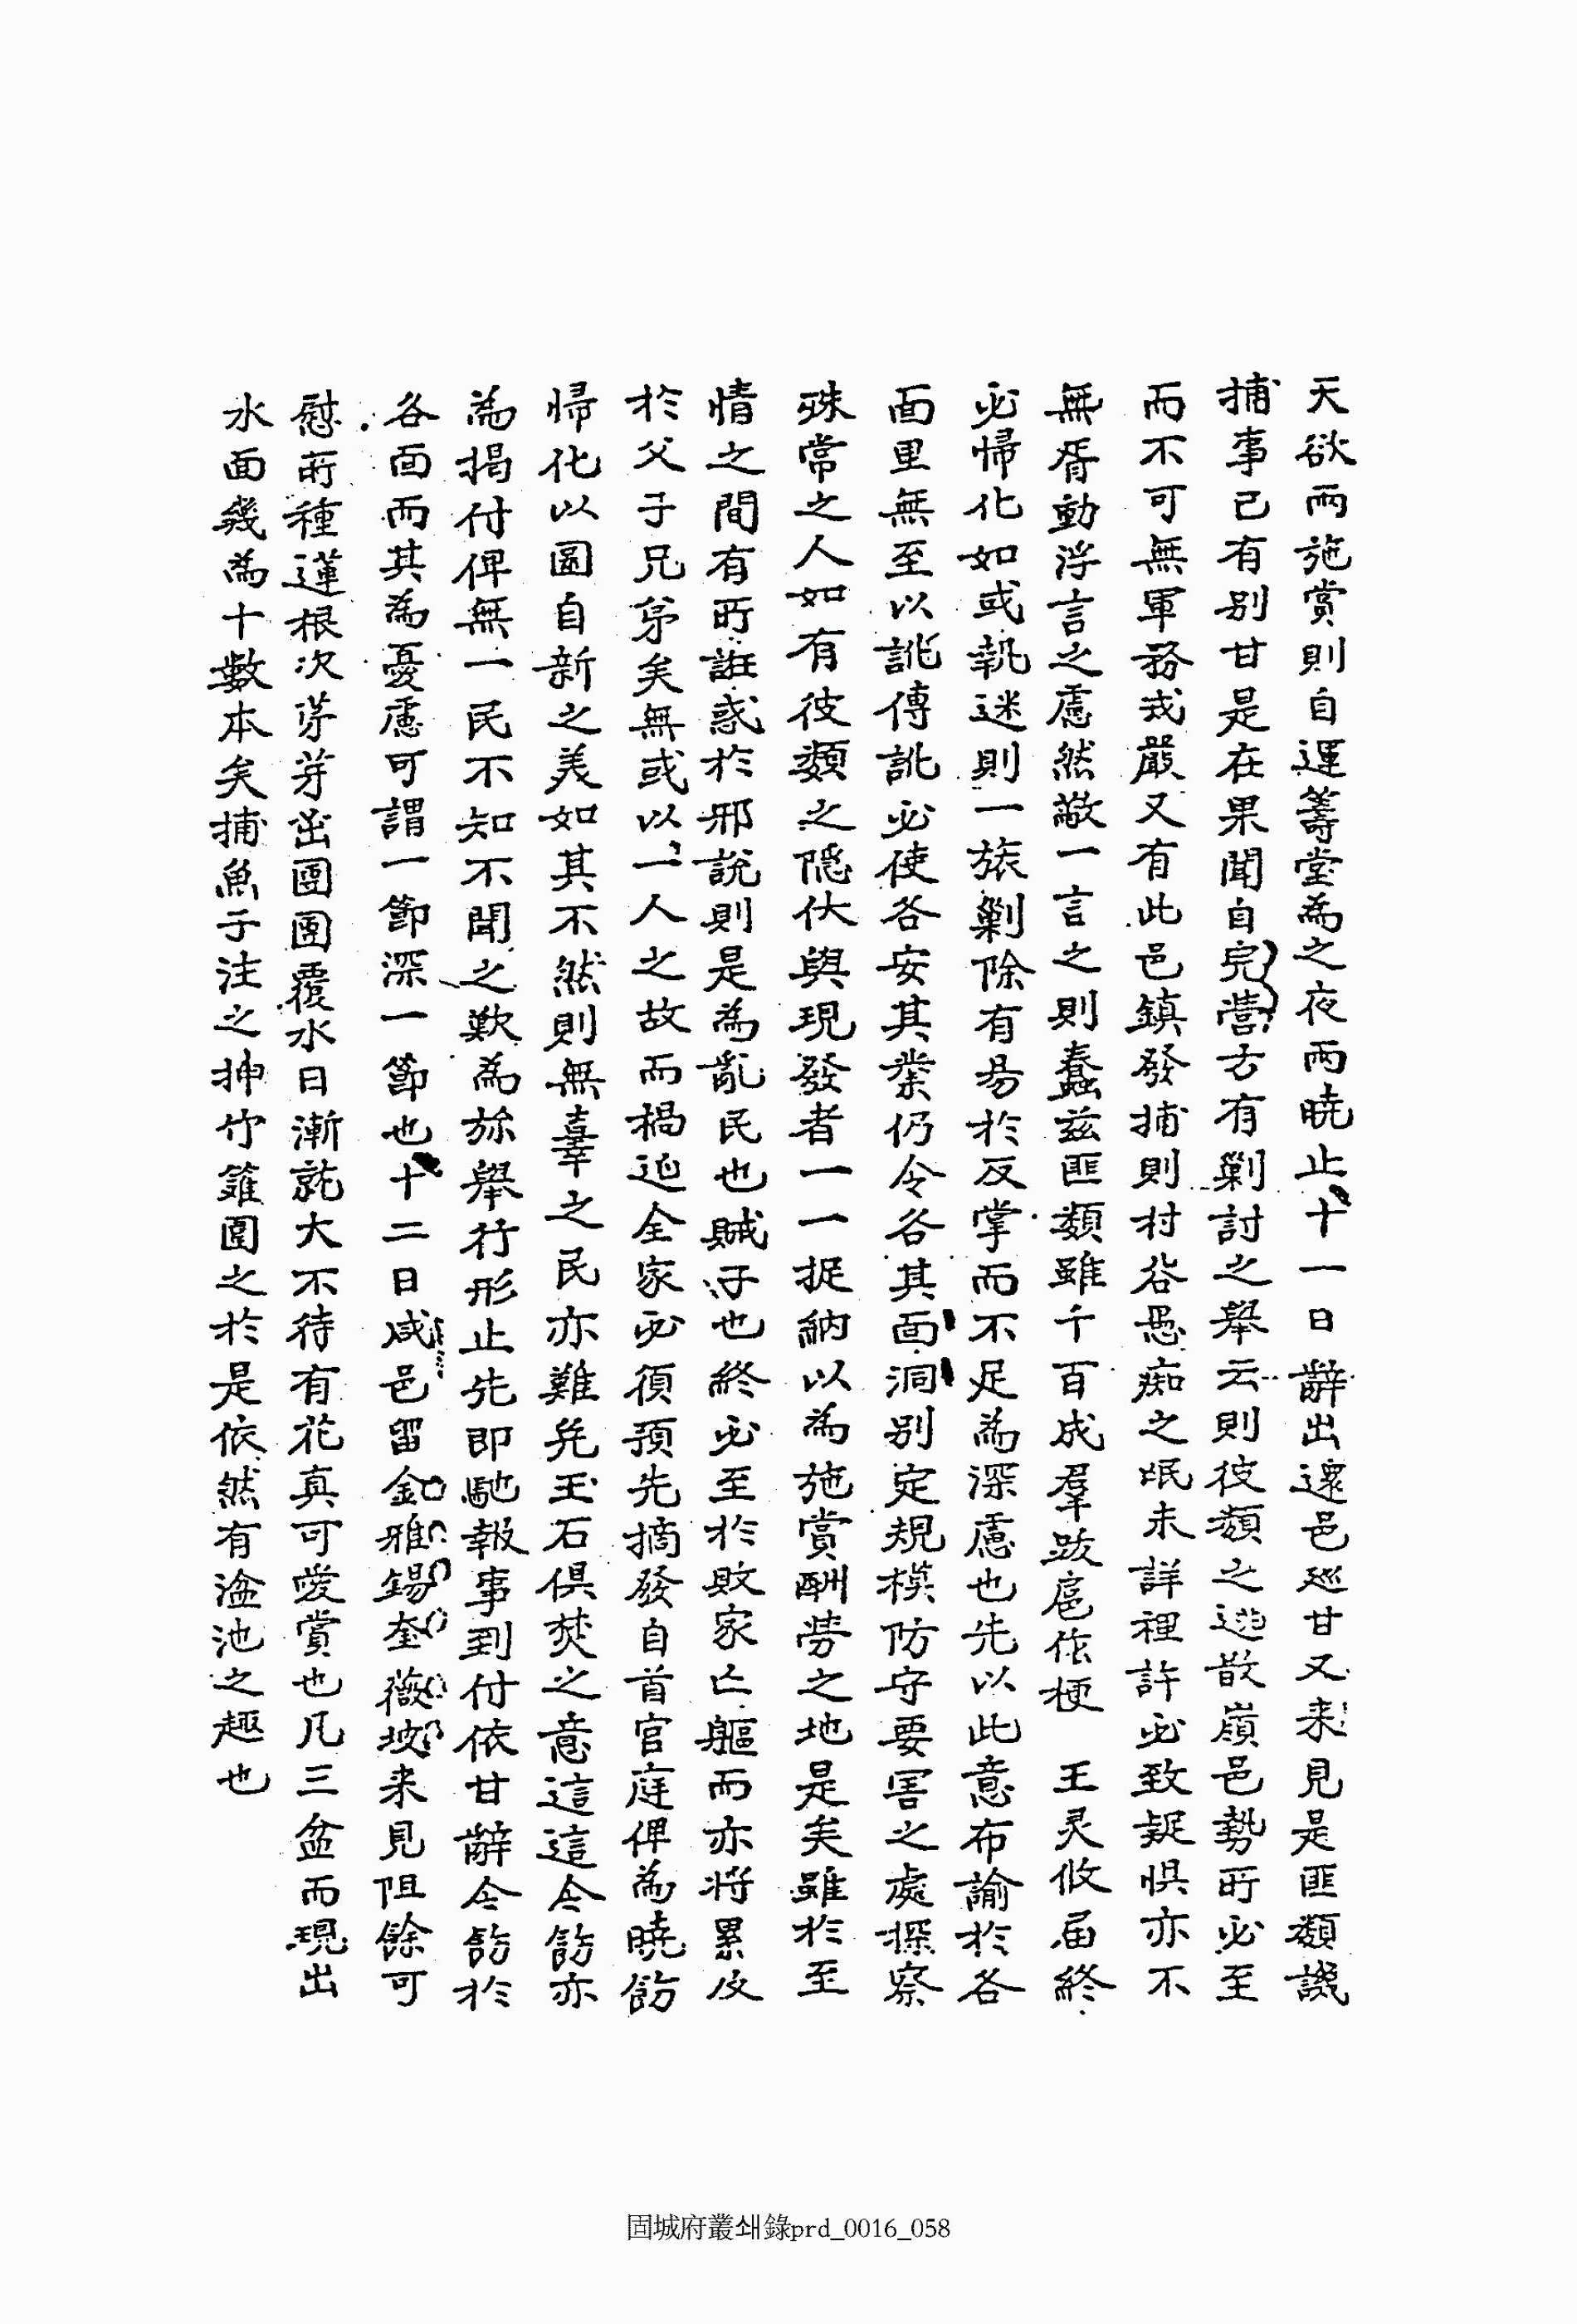 天欲雨施賞則自運籌堂為之夜雨曉止十一日辭出還邑巡甘又来見是匪類譏
捕事已有別甘是在果聞自完營方有剿討之舉云則彼類之逃散嶺邑勢所必至
而不可無軍務戎嚴又有此邑鎮發捕則村谷愚痴之氓未詳裡許必致疑惧亦不
無胥動浮言之慮然蔽一言之則蠢茲匪類雖千百成羣跋扈依梗 王灵攸届終
必帰化如或執迷則一旅剿除有易於反掌而不足為深慮也先以此意布諭於各
面里無至以訛傳訛必使各安其業仍令各其面洞別定規模防守要害之處探察
殊常之人如有彼類之隱伏與現發者一一捉納以為施賞酬勞之地是矣雖於至
情之間有所誑惑於邪說則是為亂民也賊子也終必至於敗家亡軀而亦將累及
於父子兄弟矣無或以一人之故而禍延全家必須預先摘發自首官庭俾為曉飭
帰化以圖自新之美如其不然則無辜之民亦難免玉石俱焚之意這這令飭亦
為揭付俾無一民不知不聞之歎為旀舉行形止先即馳報事到付依甘辭令飭於
各面而其為憂慮可謂一節深一節也十二日咸邑留釦雅錫奎薇坡来見阻餘可
慰所種蓮根次芽芽出團團覆水日漸就大不待有花真可愛賞也凡三盆而現出
水面幾為十數本矣捕魚子注之抻竹籬圍之於是依然有淦池之趣也
固城府叢쇄錄prd_0016_058